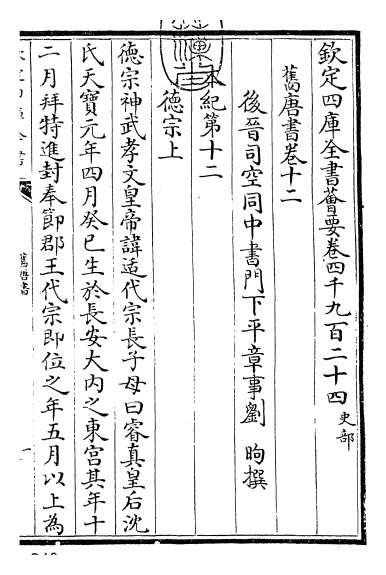 欽定四庫全書薈要卷四千九百二十四 史部
舊唐書卷十二
後晉司空同中書門下平章事劉昫撰
本紀第十二
德宗上
德宗神武孝文皇帝諱适代宗長子母曰睿真皇后沈
氏天寶元年四月癸巳生於長安大內之東宮其年十
二月拜特進封奉節郡王代宗即位之年五月以上為
舊唐書
一